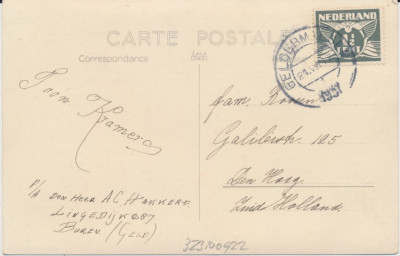 CARTE POSTALE
Correspondance
NEDERLAND
1½
CENT
GELDERM
1937
Toon Kramer
fam.
Galileistr 125
Den Haag
Zuid Holland.
P/A DEN HEER A.C. HAKKERT
LINGEDIJK G87
BUREN (GELD)
323100922